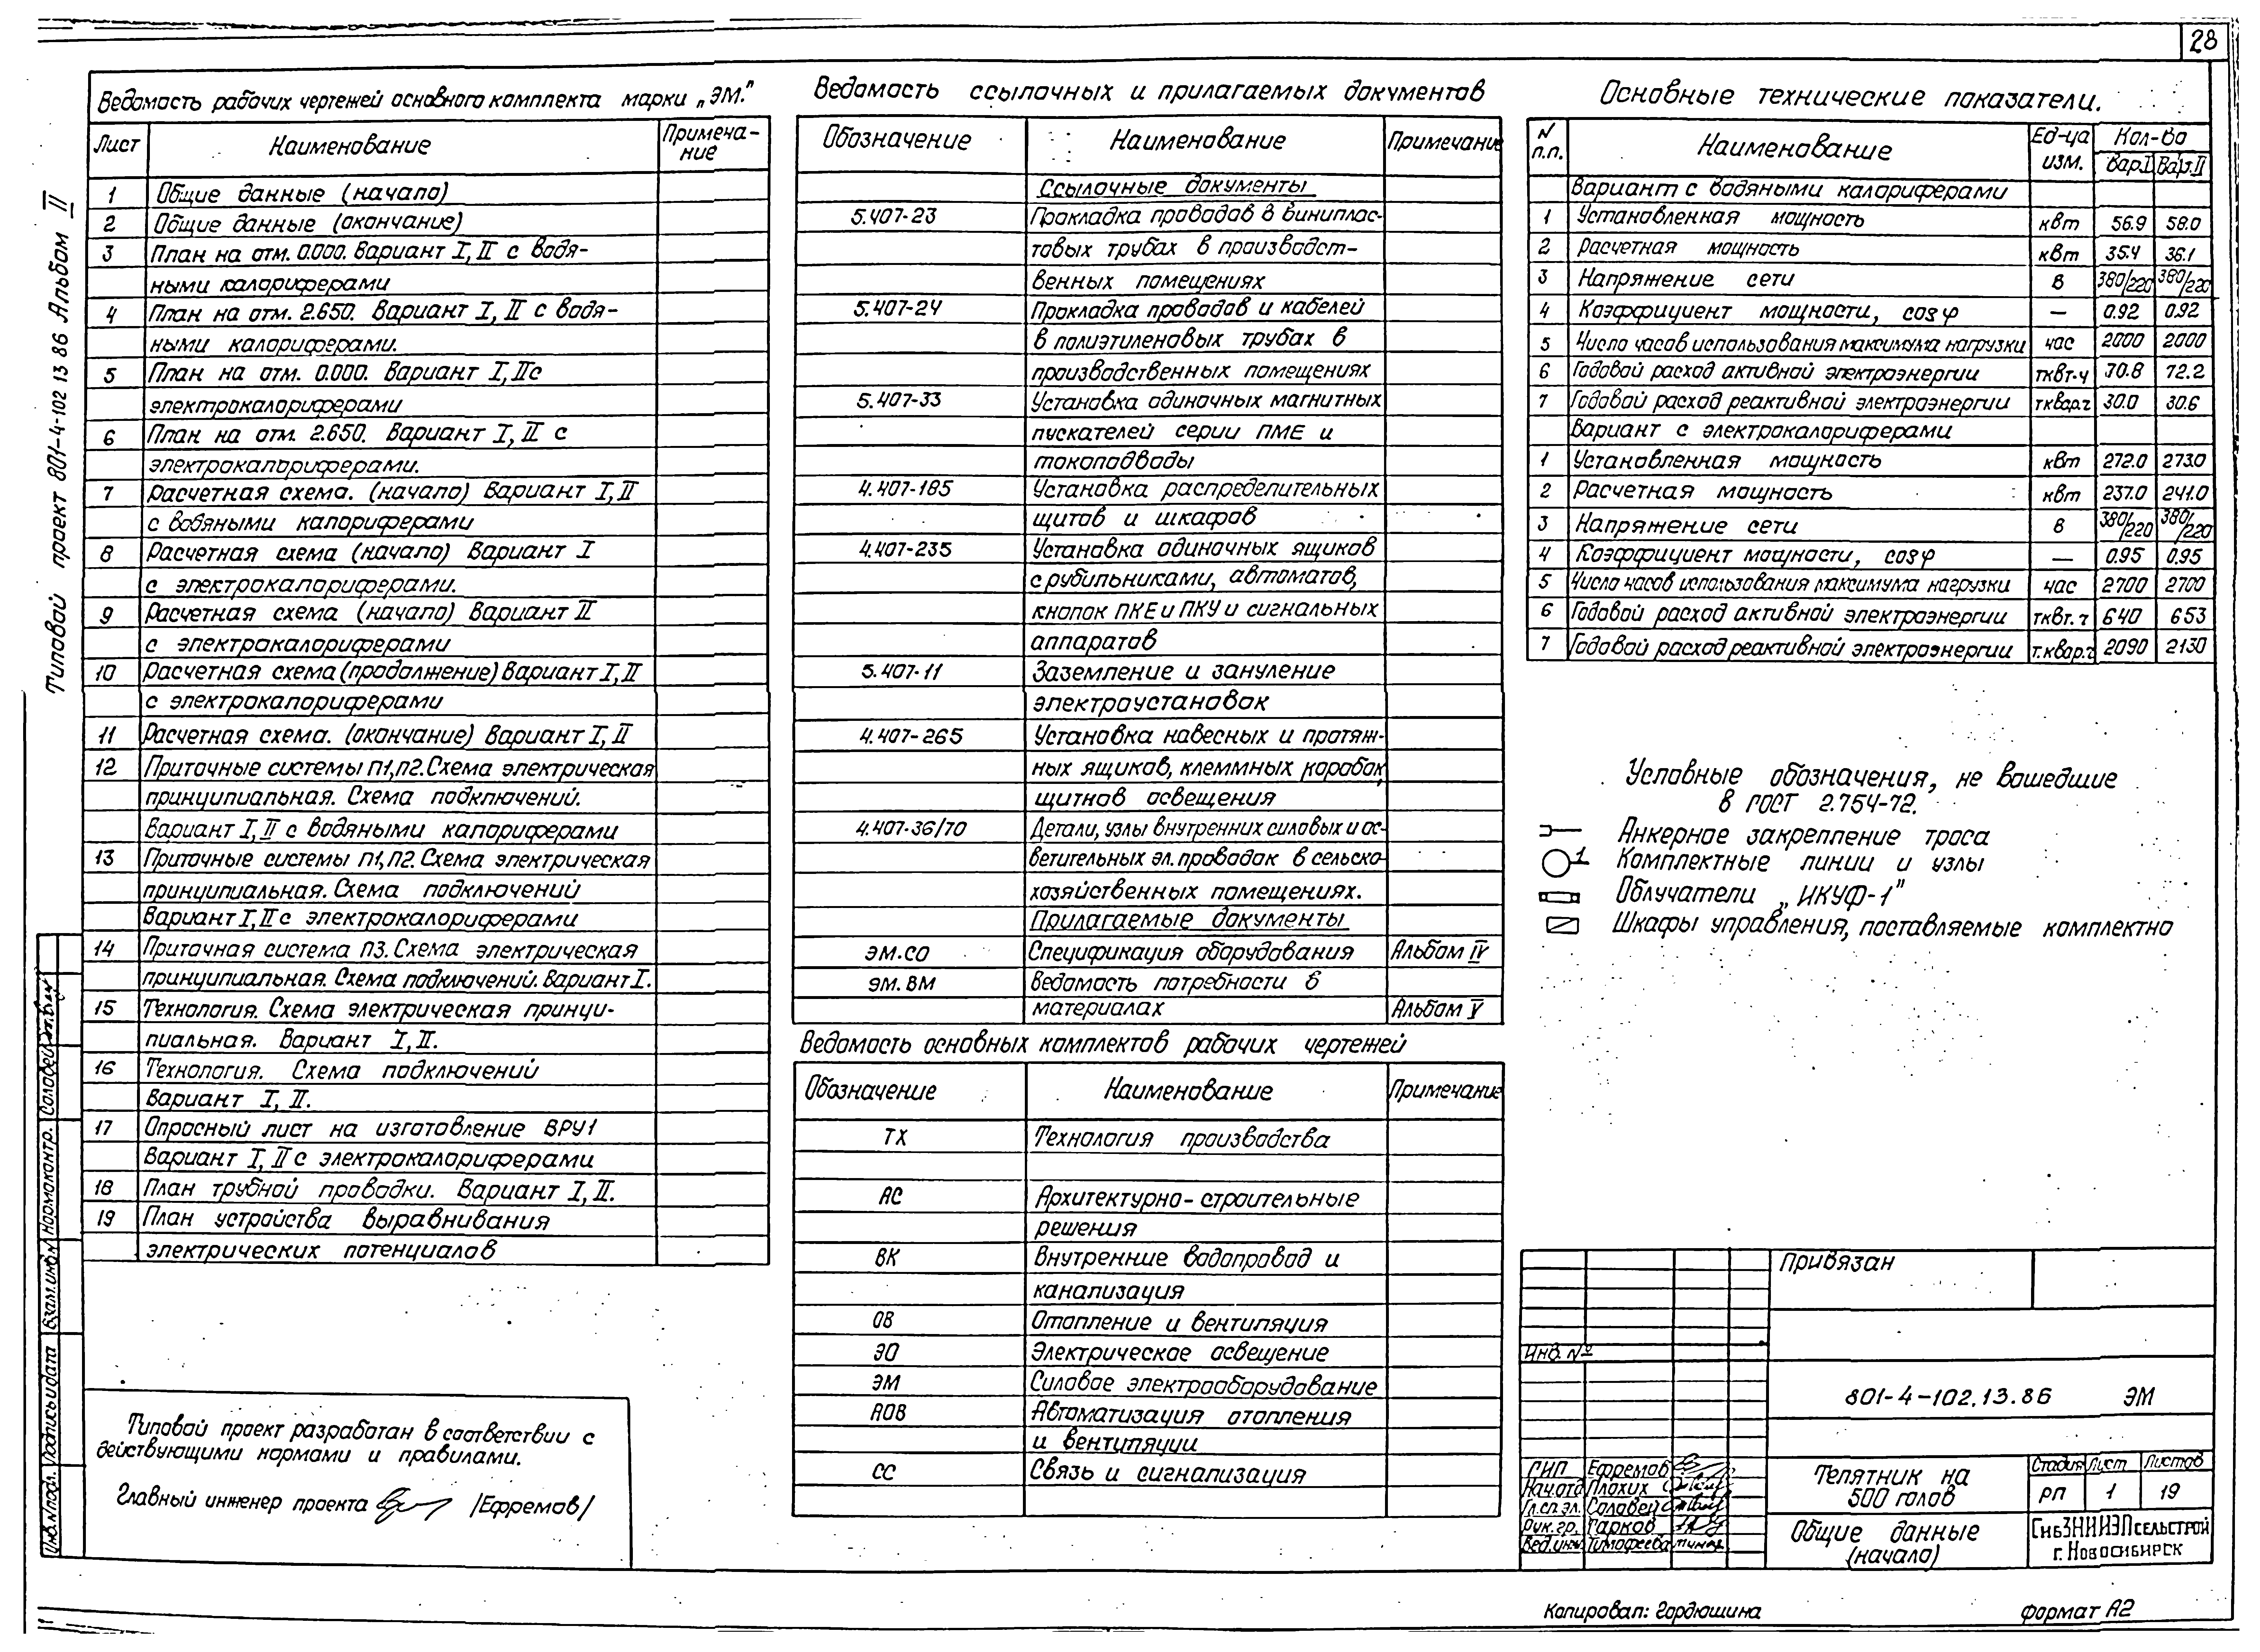 28
Типовой проект 801-4-102 13 86 Альбом II
Ведомость рабочих чертежей основного комплекта марки „ЭМ."
Лист Наименование Примеча-
ние
1 Общие данные (начало)
2 Общие данные (окончание)
3 План на отм. 0.000. Вариант I, II с водя-
ными калориферами
4 План на отм. 2.650. Вариант I, II с водя-
ными калориферами.
5 План на отм. 0.000. Вариант I, II с
электрокалориферами
6 План на отм. 2.650. Вариант I, II с
электрокалориферами.
7 Расчетная схема. (начало) Вариант I, II
с водяными калориферами
8 Расчетная схема (начало) Вариант I
с электрокалориферами.
9 Расчетная схема (начало) Вариант II
с электрокалориферами
10 Расчетная схема (продолжение) Вариант I, II
с электрокалориферами
11 Расчетная схема. (окончание) Вариант I, II
12 Приточные системы П1, П2. Схема электрическая
принципиальная. Схема подключений.
Вариант I, II с водяными калориферами
13 Приточные системы П1, П2. Схема электрическая
принципиальная. Схема подключений
Вариант I, II с электрокалориферами
14 Приточная система П3. Схема электрическая
принципиальная. Схема подключений. Вариант I.
15 Технология. Схема электрическая принци-
пиальная. Вариант I, II.
16 Технология. Схема подключений
Вариант I, II.
17 Опросный лист на изготовление ВРУ1
Вариант I, II с электрокалориферами
18 План трубной проводки. Вариант I, II.
19 План устройства выравнивания
электрических потенциалов
Типовой проект разработан в соответствии с
действующими нормами и правилами.
Главный инженер проекта /Ефремов/
Ведомость ссылочных и прилагаемых документов
Обозначение Наименование Примечание
Ссылочные документы
5.407-23 Прокладка проводов в виниплас-
товых трубах в производст-
венных помещениях
5.407-24 Прокладка проводов и кабелей
в полиэтиленовых трубах в
производственных помещениях
5.407-33 Установка одиночных магнитных
пускателей серии ПМЕ и
токоподводы
4.407-185 Установка распределительных
щитов и шкафов
4.407-235 Установка одиночных ящиков
с рубильниками, автоматов,
кнопок ПКЕ и ПКУ и сигнальных
аппаратов
5.407-11 Заземление и зануление
электроустановок
4.407-265 Установка навесных и протяж-
ных ящиков, клеммных коробок,
щитков освещения
4.407-36/70 Детали, узлы внутренних силовых и ос-
ветительных эл. проводок в сельско-
хозяйственных помещениях.
Прилагаемые документы
ЭМ.СО Спецификация оборудования Альбом IV
ЭМ.ВМ Ведомость потребности в
материалах Альбом V
Ведомость основных комплектов рабочих чертежей
Обозначение Наименование Примечание
ТХ Технология производства
АС Архитектурно-строительные
решения
ВК Внутренние водопровод и
канализация
ОВ Отопление и вентиляция
ЭО Электрическое освещение
ЭМ Силовое электрооборудование
АОВ Автоматизация отопления
и вентиляции
СС Связь и сигнализация
Основные технические показатели.
N п.п. Наименование Ед-ца изм. Кол-во
Вар.I Вар.II
Вариант с водяными калориферами
1 Установленная мощность квт 56.9 58.0
2 Расчетная мощность квт 35.4 36.1
3 Напряжение сети в 380/220 380/220
4 Коэффициент мощности, cosφ — 0.92 0.92
5 Число часов использования максимума нагрузки час 2000 2000
6 Годовой расход активной электроэнергии тквт.ч 70.8 72.2
7 Годовой расход реактивной электроэнергии тквар.ч 30.0 30.6
Вариант с электрокалориферами
1 Установленная мощность квт 272.0 273.0
2 Расчетная мощность квт 237.0 241.0
3 Напряжение сети в 380/220 380/220
4 Коэффициент мощности, cosφ — 0.95 0.95
5 Число часов использования максимума нагрузки час 2700 2700
6 Годовой расход активной электроэнергии тквт.ч 640 653
7 Годовой расход реактивной электроэнергии т.квар.ч 2090 2130
Условные обозначения, не вошедшие
в ГОСТ 2.754-72.
Анкерное закрепление троса
1 Комплектные линии и узлы
Облучатели „ИКУФ-1"
Шкафы управления, поставляемые комплектно
Привязан
Инв. №
801-4-102.13.86 ЭМ
ГИП Ефремов
Нач.отд Плохих
Гл.сп.эл. Соловей
Рук.гр. Тарков
Вед.инж. Тимофеева
Телятник на
500 голов
Стадия Лист Листов
РП 1 19
Общие данные
(начало)
СибЗНИИЭПсельстрой
г. Новосибирск
Инв.№подл. Подпись и дата Взам.инв.№ Нормоконтр. Соловей
Копировал: Гордюшина
Формат А2